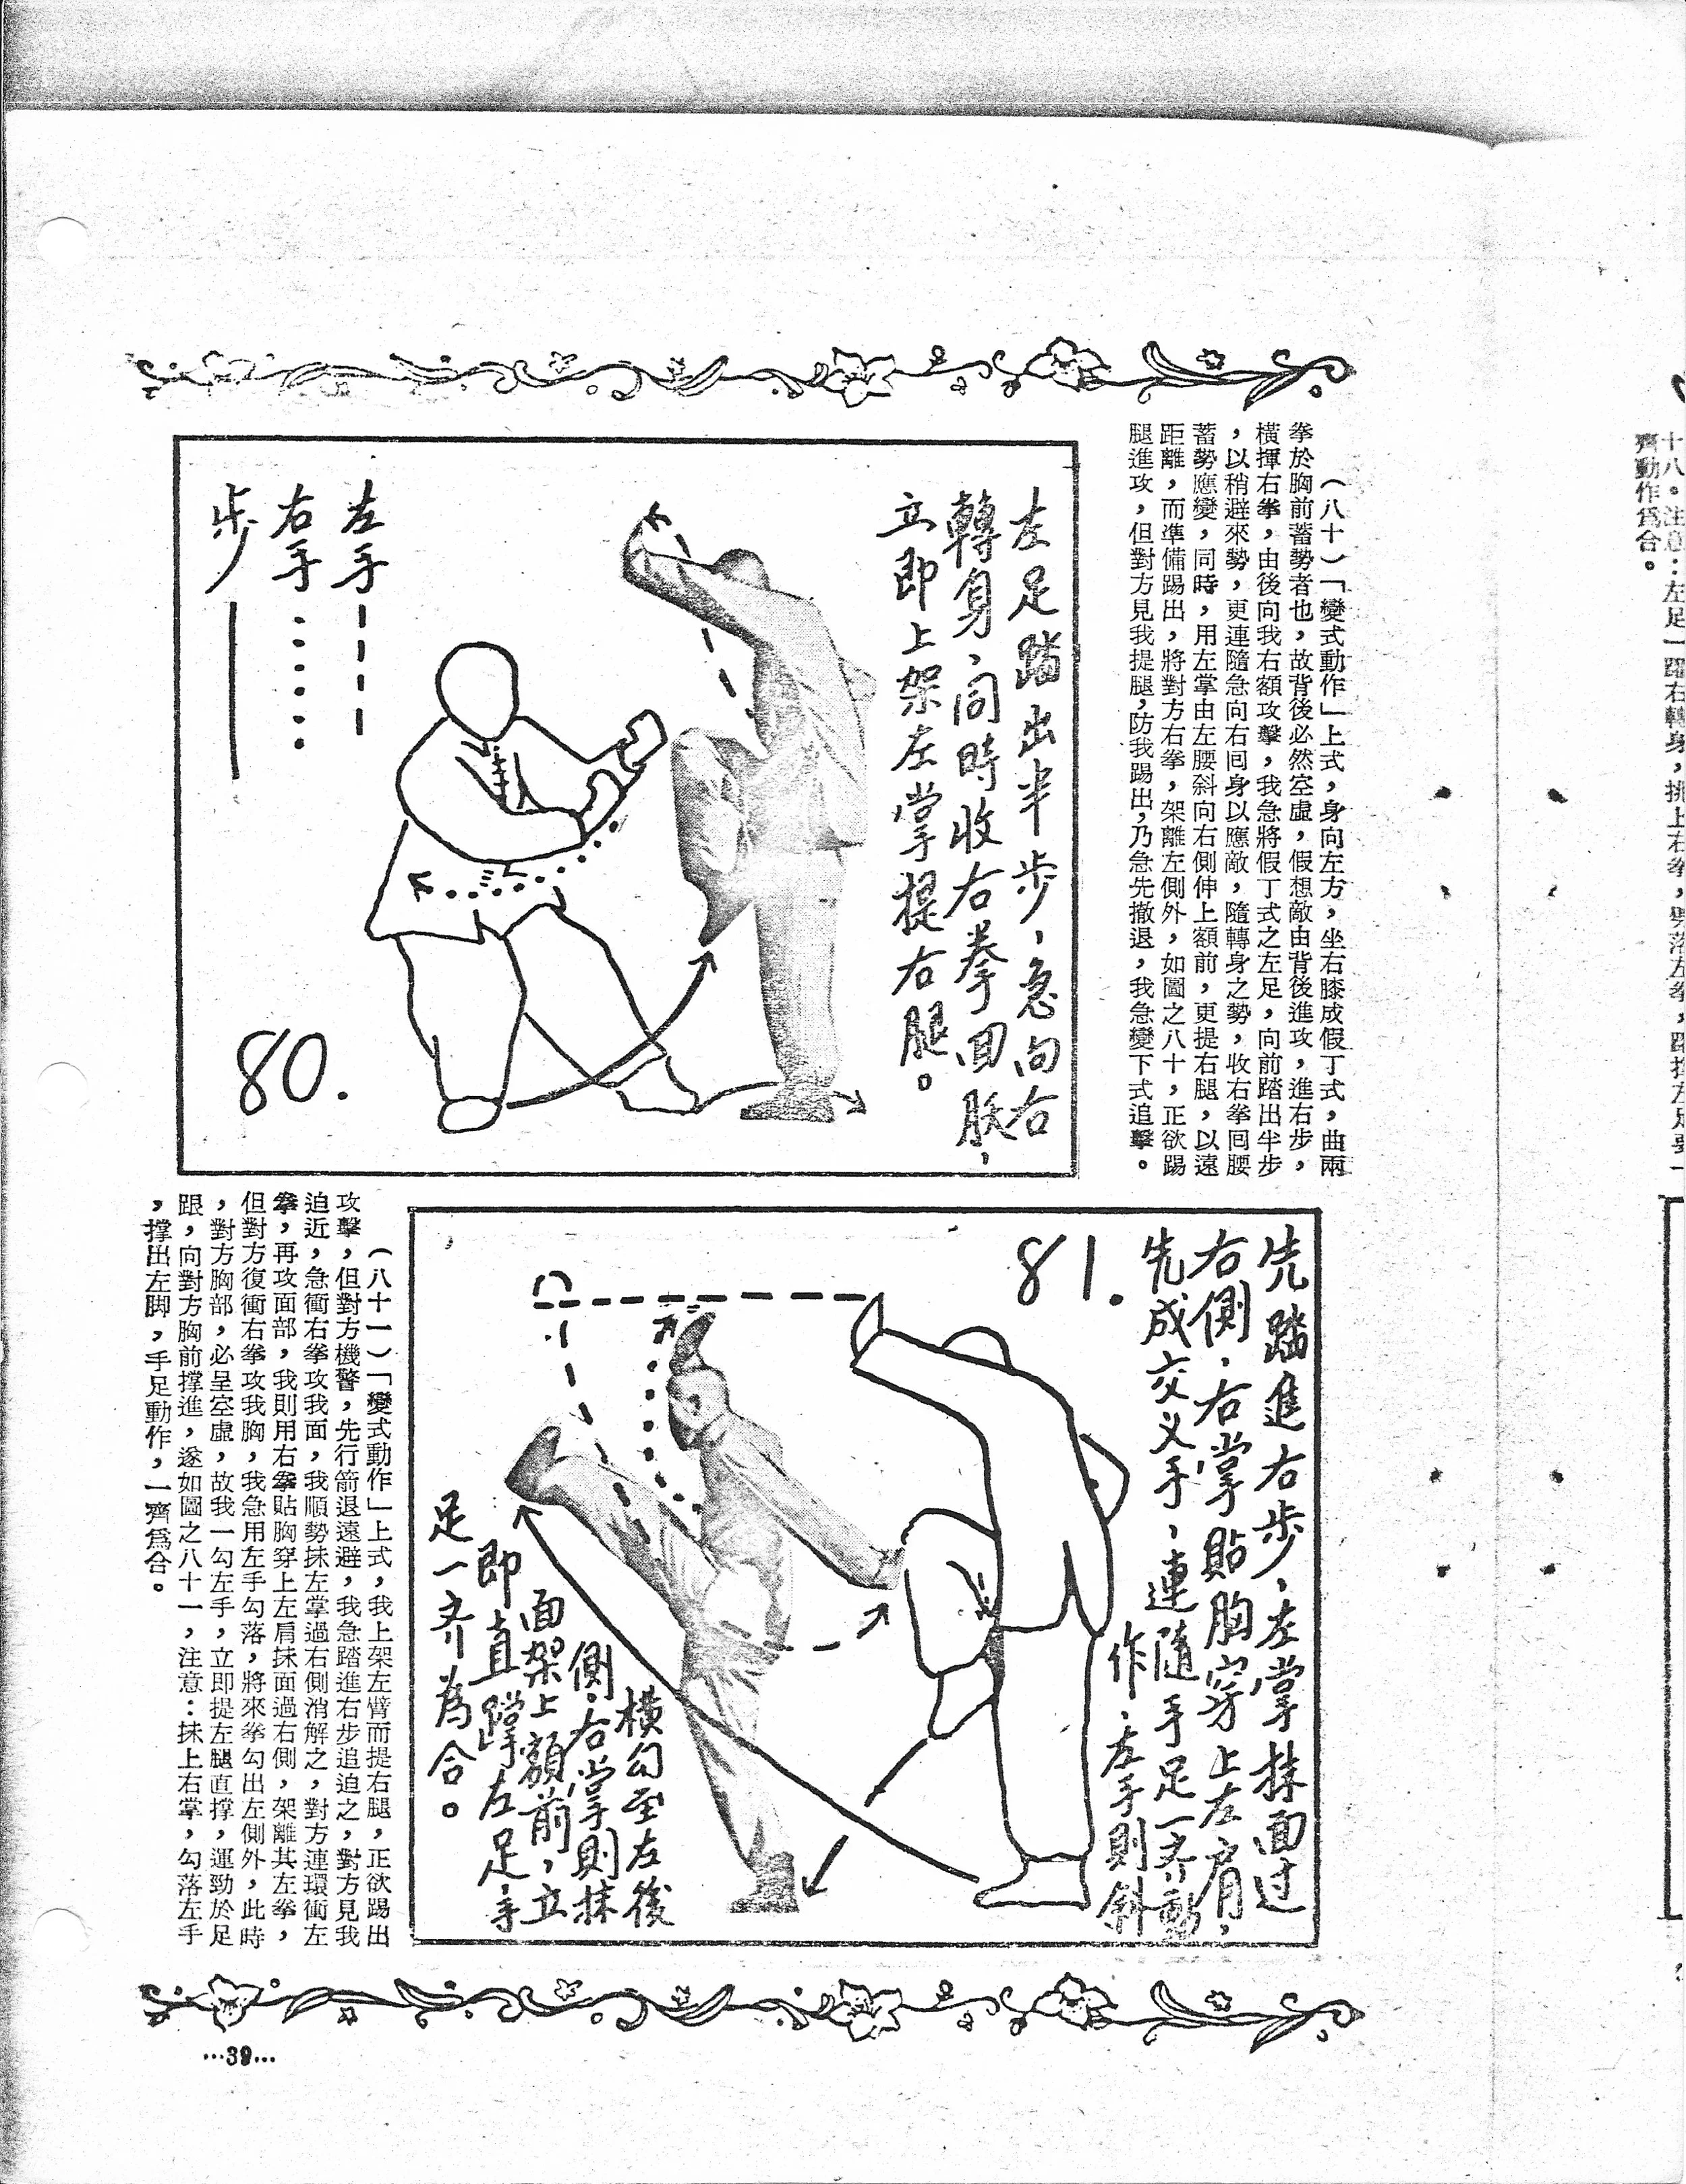 十八。注意：左足一踏右轉身，挑上右拳，
齊動作爲合。
（八十）「變式動作」上式，身向左方，坐右膝成假丁式，曲兩
拳於胸前蓄勢者也，故背後必然空虛，假想敵由背後進攻，進右步，
橫揮右拳，由後向我右額攻擊，我急將假丁式之左足，向前踏出半步
，以稍避來勢，更連隨急向右囘身以應敵，隨轉身之勢，收右拳囘腰
蓄勢應變，同時，用左掌由左腰斜向右側伸上額前，更提右腿，以遠
距離，而準備踢出，將對方右拳，架離左側外，如圖之八十，正欲踢
腿進攻，但對方見我提腿，防我踢出，乃急先撤退，我急變下式追擊。
左足踏出半步，急向右
轉身，同時收右拳回腰，
立即上架左掌提右腿。
左手
右手
步
80.
先踏進右步，左掌抹面过
右側，右掌貼胸穿上左肩，
先成交义手，連隨手足一齐動
作，左手則斜
81.
橫勾至左後
側，右掌則抹
面架上額前，立
即直撑左足，手
足一齐為合。
（八十一）「變式動作」上式，我上架左臂而提右腿，正欲踢出
攻擊，但對方機警，先行箭退遠避，我急踏進右步追迫之，對方見我
迫近，急衝右拳攻我面，我順勢抹左掌過右側消解之，對方連環衝左
拳，再攻面部，我則用右拳貼胸穿上左肩抹面過右側，架離其左拳，
但對方復衝右拳攻我胸，我急用左手勾落，將來拳勾出左側外，此時
，對方胸部，必呈空虛，故我一勾左手，立即提左腿直撑，運勁於足
跟，向對方胸前撑進，遂如圖之八十一，注意：抹上右掌，勾落左手
，撑出左脚，手足動作，一齊爲合。
…39…